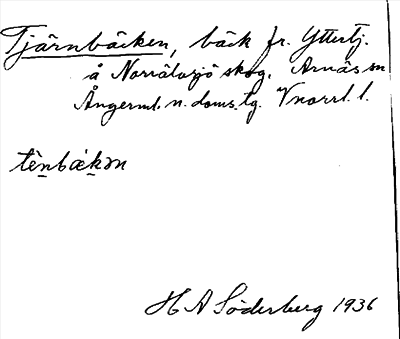 Tjärnbäcken, bäck fr. Yttertj.
å Norrälasjö skog. Arnäs sn
Ångerml. n. doms.tg. Vnorrl. l.
tè̱nbæ̀ḵən
H A Söderberg 1936